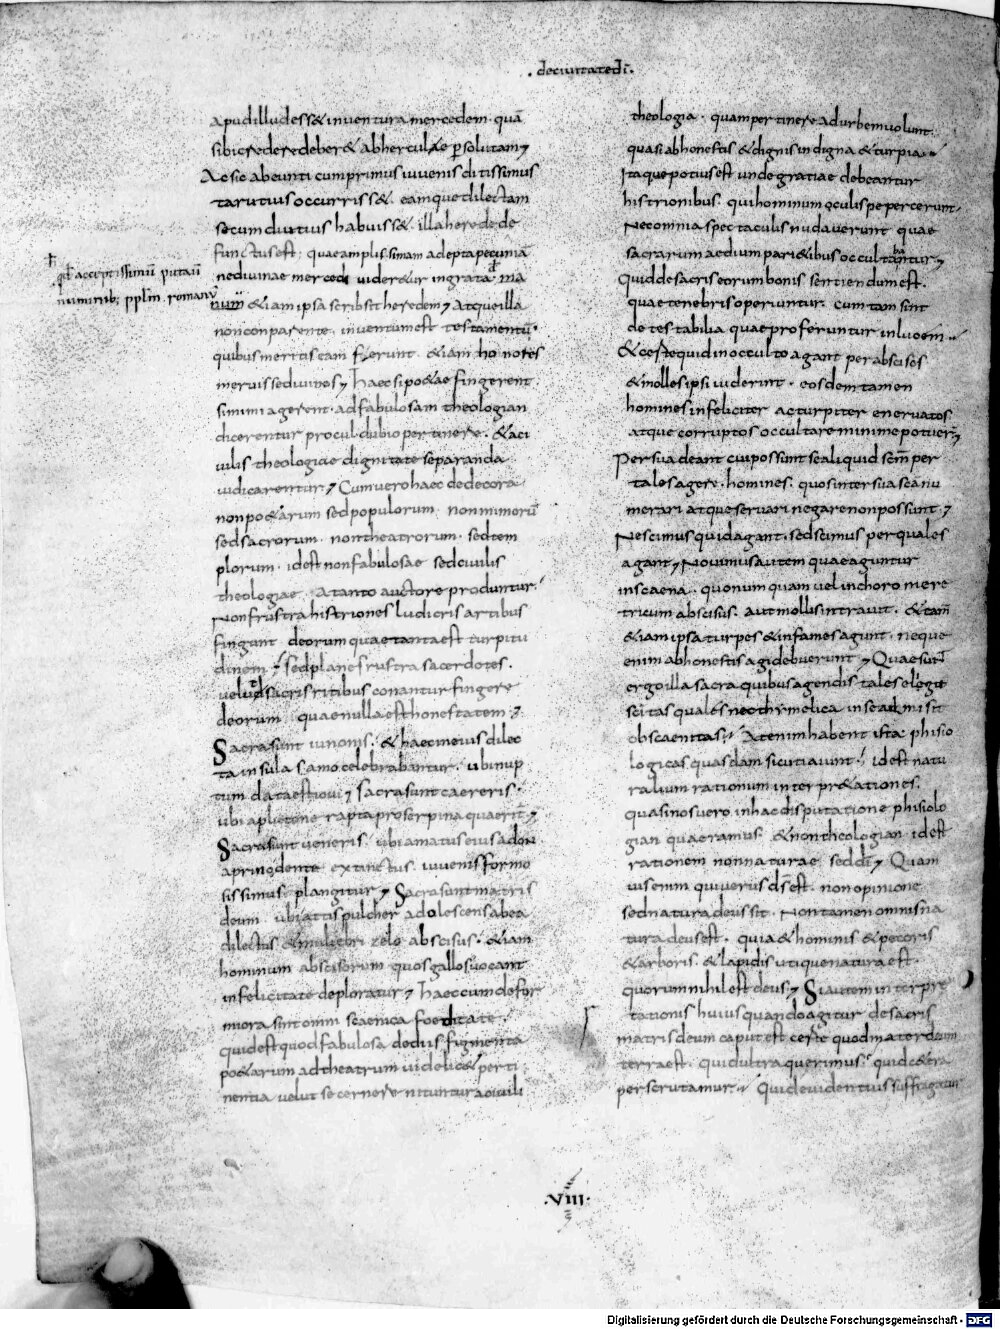 . deciuitatedī.
apud illud esset inuentura mercedem. quā
sibi credere deberet abherculae ꝑsolutam;
Ac sic abeunti cum primus iuuenis ditissimus
tarutius occurrisset. eamque dilectam
secum diutius habuisset. illa herede de
functus est. quae amplissimam adepta pecuniā
ne diuinae mercedi uideretur ingrata. qđ ma
num etiam ipsa scribsit heredem; Atque illa
non conparente. inuentum est testamentū.
quibus meritis eam ferunt. etiam honores
meruisse diuinos; Haec si poetae fingerent.
si mimi agerent. ad fabulosam theologian
dicerentur procul dubio pertinere. et a ci
uilis theologiae dignitate separanda
iudicarentur; Cum uero haec dedecora
non poetarum sed populorum. non mimorū
sed sacrorum. non theatrorum. sed tem
plorum. id est non fabulosae sed ciuilis
theologiae. a tanto auctore produntur.
Non frustra histriones ludicris artibus
fingunt deorum quae tanta est turpitu
dinem; sed plane frustra sacerdotes.
uelut sacris ritibus conantur fingere
deorum quae nulla est honestatem;
Sacra sunt iunonis. et haec in eius dilec
ta insula samo celebrabantur. ubi nup
tum data est ioui; sacra sunt caereris.
ubi a plutone rapta proserpina quaerit̄;
Sacra sunt ueneris. ubi amatus eius adon
aprino dente extinctus. iuuenis formo
sissimus plangitur; Sacra sunt matris
deum. ubi attis pulcher adolescens ab ea
dilectus et muliebri zelo abscisus. etiam
hominum abscisorum quos gallos uocant
infelicitate deploratur; Haec cum defor
miora sint omni scaenica foeditate.
quid est quod fabulosa de diis figmenta
poetarum ad theatrum uidelicet perti
nentia uelut secernere nituntur a ciuili
qđ acceptissimū putaū
numinib; pplīm romanū
theologia. quam pertinere ad urbem uolunt.
quasi ab honestis et dignis indigna et turpia.
Itaque potius est unde gratiae debeantur
histrionibus. qui hominum oculis pepercerunt.
Nec omnia spectaculis nudauerunt quae
sacrarum aedium parietibus occultantur;
ba
Quid de sacris eorum bonis sentiendum est.
quae tenebris operiuntur. cum tam sint
detestabilia quae proferuntur in lucem.
Et certe quid in occulto agant per abscisos
et molles ipsi uiderint. eosdem tamen
homines infeliciter ac turpiter eneruatos
atque corruptos occultare minime potuer̄;
Persuadeant cui possunt se aliquid scm̄ per
tales agere. homines. quos inter sua sca nu
merari atque seruari negare non possunt;
Nescimus quid agant. sed scimus per quales
agant; Nouimus autem quae aguntur
in scaena. quo numquam uel in choro mere
tricum abscisus. aut mollis intrauit. et tam̄
etiam ipsa turpes et infames agunt. neque
enim ab honestis agi debuerunt; Quae sunt
ergo illa sacra quibus agendis tales elegit
scitas quales nec thymelica in se admisit
obscaenitas; At enim habent ista physio
logicas quasdam sicut aiunt. id est natu
ralium rationum interpretationes.
quasi nos uero in hac disputatione phisiolo
gian quaeramus. et non theologian. id est
rationem non naturae. sed dī; Quam
uis enim qui uerus ds̄ est. non opinione
sed natura deus sit. Non tamen omnis na
tura deus est. quia et hominis et pecoris
et arboris. et lapidis utique natura est.
quorum nihil est deus; Si autem interpre
tationis huius quando agitur de sacris
matris deum caput est certe quod mater deum
terra est. quid ultra querimus. quid cetera
perscrutamur. Quid euidentius suffragatur
.VIII.
Digitalisierung gefördert durch die Deutsche Forschungsgemeinschaft - DFG